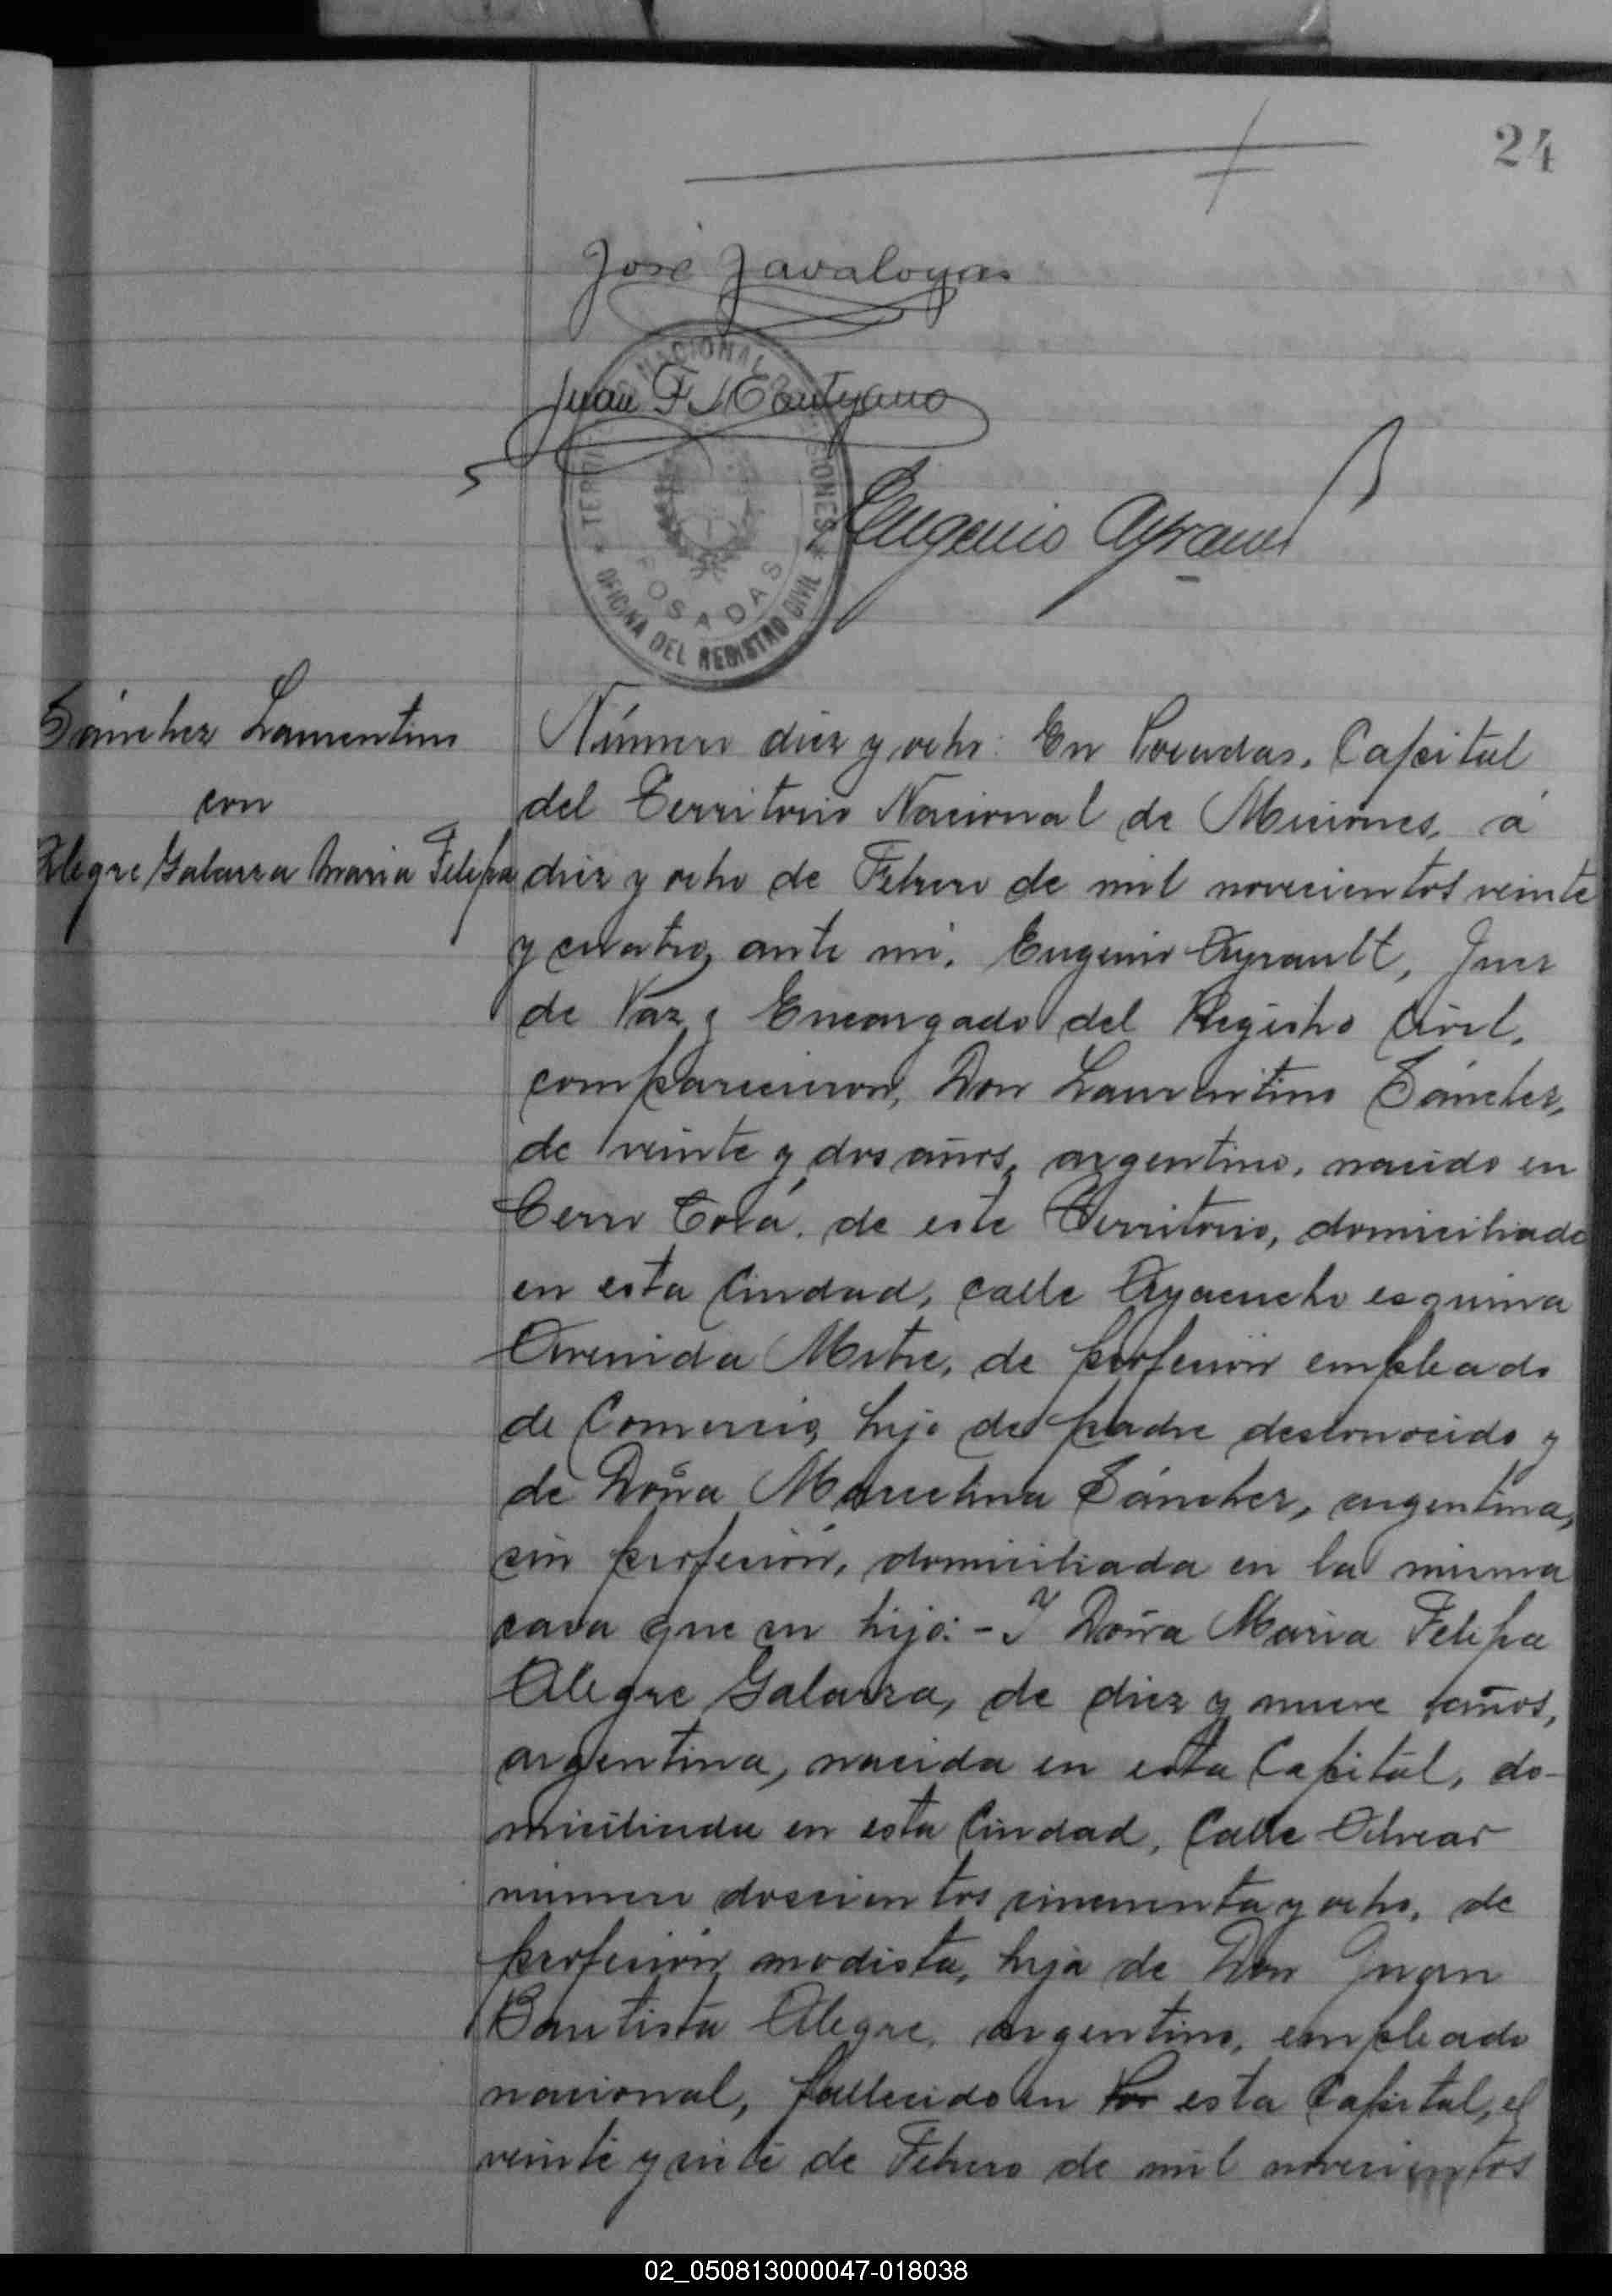 24
José Zavaloyas
Juan F.
TERRITORIO NACIONAL DE MISIONES
POSADAS
OFICINA DEL REGISTRO CIVIL
Eugenio Ayrault
Sánchez Laurentino
con
Alegre Galarza Maria Felipa
Número diez y ocho: En Posadas, Capital
del Territorio Nacional de Misiones, á
diez y ocho de Febrero de mil novecientos veinte
y cuatro, ante mi, Eugenio Ayrault, Juez
de Paz y Encargado del Registro Civil,
comparecieron, Don Laurentino Sánchez,
de veinte y dos años, argentino, nacido en
Cerro Corá, de este Territorio, domiciliado
en esta Ciudad, calle Ayacucho esquina
Avenida Mitre, de profesión empleado
de Comercio, hijo de padre desconocido y
de Doña Marcelina Sánchez, argentina,
sin profesión, domiciliada en la misma
casa que su hijo: - Y Doña Maria Felipa
Alegre Galarza, de diez y nueve años,
argentina, nacida en esta Capital, do-
miciliada en esta Ciudad, Calle Alvear
número doscientos cincuenta y ocho, de
profesión modista, hija de Don Juan
Bautista Alegre, argentino, empleado
nacional, fallecido en esta Capital, el
veinte y siete de Febrero de mil novecientos
02_050813000047-018038